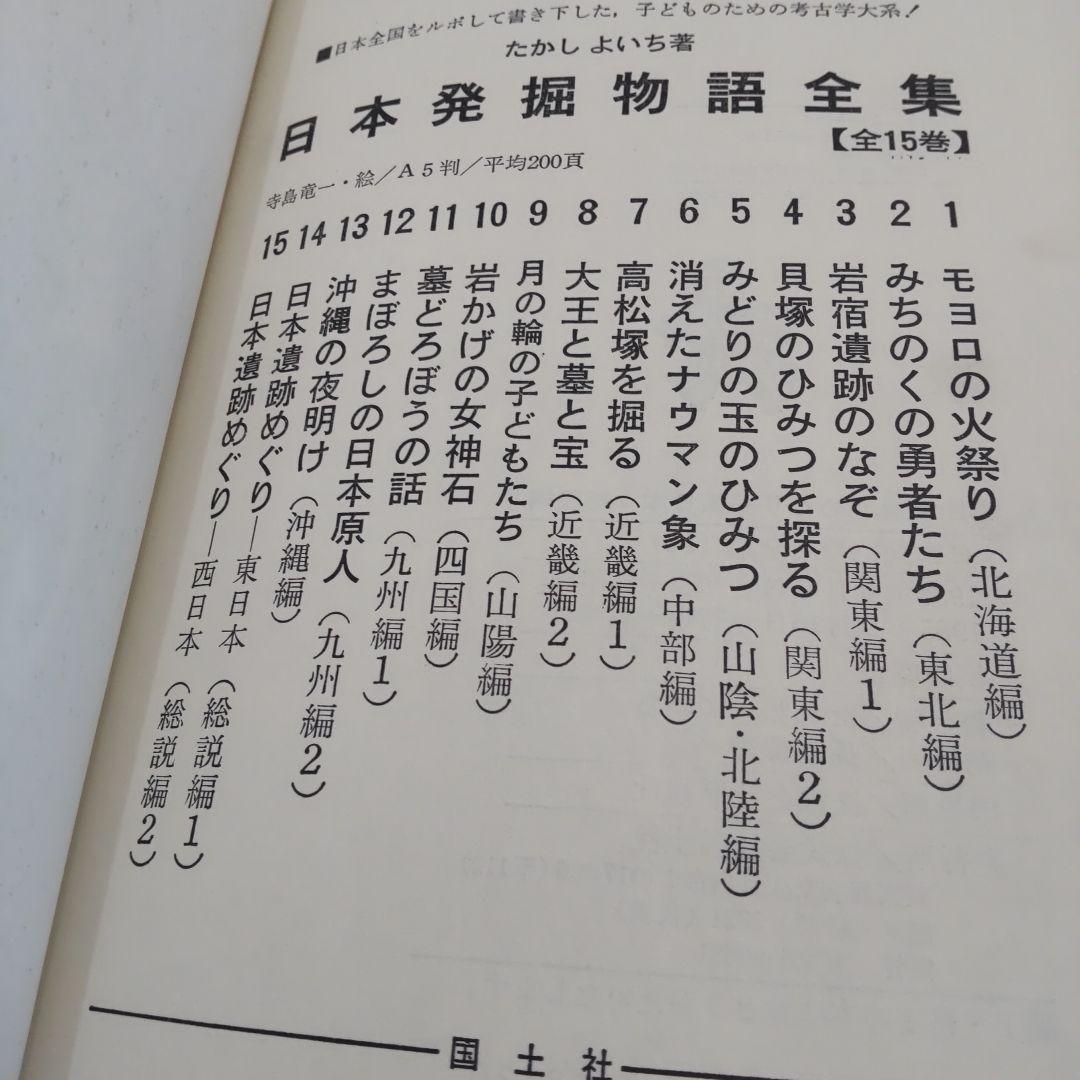 ■日本全国をルポして書き下した，子どものための考古学大系！
たかし よいち著
日本発掘物語全集
【全15巻】
寺島竜一・絵／A５判／平均200頁
1 モヨロの火祭り（北海道編）
2 みちのくの勇者たち（東北編）
3 岩宿遺跡のなぞ（関東編1）
4 貝塚のひみつを探る（関東編2）
5 みどりの玉のひみつ（山陰・北陸編）
6 消えたナウマン象（中部編）
7 高松塚を掘る（近畿編1）
8 大王と墓と宝（近畿編2）
9 月の輪の子どもたち（山陽編）
10 岩かげの女神石（四国編）
11 墓どろぼうの話（九州編1）
12 まぼろしの日本原人（九州編2）
13 沖縄の夜明け（沖縄編）
14 日本遺跡めぐり―東日本（総説編1）
15 日本遺跡めぐり―西日本（総説編2）
国土社